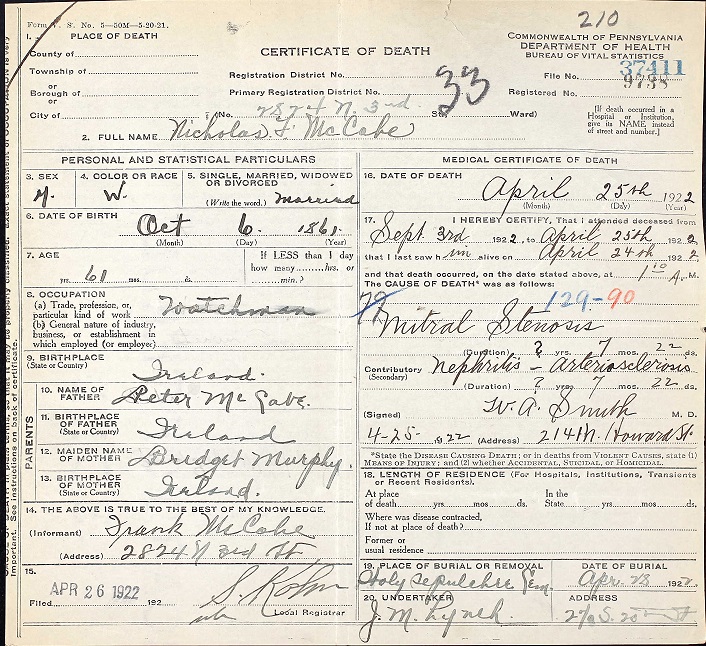 Form V. S. No. 5—50M—5-20-21.
210
1. PLACE OF DEATH
County of
Township of
or
Borough of
or
City of
CERTIFICATE OF DEATH
Registration District No.
Primary Registration District No.
33
(No. 2824 N. 3rd. St. Ward)
COMMONWEALTH OF PENNSYLVANIA
DEPARTMENT OF HEALTH
BUREAU OF VITAL STATISTICS
File No. 37411
Registered No. 9738
[If death occurred in a Hospital or Institution, give its NAME instead of street and number.]
2. FULL NAME Nicholas F McCabe
PERSONAL AND STATISTICAL PARTICULARS
3. SEX
M.
4. COLOR OR RACE
W.
5. SINGLE, MARRIED, WIDOWED OR DIVORCED
(Write the word.) Married
6. DATE OF BIRTH
Oct 6. 1861
(Month) (Day) (Year)
7. AGE
61 yrs. mos. ds.
If LESS than 1 day how many hrs. or min.?
8. OCCUPATION
(a) Trade, profession, or, particular kind of work Watchman
(b) General nature of industry, business, or establishment in which employed (or employer)
9. BIRTHPLACE
(State or Country) Ireland.
PARENTS
10. NAME OF FATHER Peter McCabe.
11. BIRTHPLACE OF FATHER
(State or Country) Ireland
12. MAIDEN NAME OF MOTHER Bridget Murphy.
13. BIRTHPLACE OF MOTHER
(State or Country) Ireland.
14. THE ABOVE IS TRUE TO THE BEST OF MY KNOWLEDGE.
(Informant) Frank McCabe
(Address) 2824 N 3rd St
15.
Filed APR 26 1922 192
Local Registrar
MEDICAL CERTIFICATE OF DEATH
16. DATE OF DEATH
April 25th 1922
(Month) (Day) (Year)
17. I HEREBY CERTIFY, That I attended deceased from
Sept. 3rd 1922, to April 25th 1922
that I last saw him alive on April 24th 1922
and that death occurred, on the date stated above, at 1 10 A. M.
The CAUSE OF DEATH* was as follows:
79 129-90
Mitral Stenosis
(Duration) ? yrs. 7 mos. 22 ds.
Contributory Nephritis - Arteriosclerosis
(Secondary)
(Duration) ? yrs. 7 mos. 22 ds.
(Signed) W. A. Smith M. D.
4-25 1922 (Address) 214 N. Howard St.
*State the DISEASE CAUSING DEATH; or in deaths from VIOLENT CAUSES, state (1) MEANS OF INJURY; and (2) whether ACCIDENTAL, SUICIDAL, OR HOMICIDAL.
18. LENGTH OF RESIDENCE (For Hospitals, Institutions, Transients or Recent Residents).
At place of death yrs. mos. ds. In the State yrs. mos. ds.
Where was disease contracted, If not at place of death?
Former or usual residence
19. PLACE OF BURIAL OR REMOVAL
Holy Sepulchre Cem.
DATE OF BURIAL
Apr. 28 1922
20. UNDERTAKER
J. M. Lynch.
ADDRESS